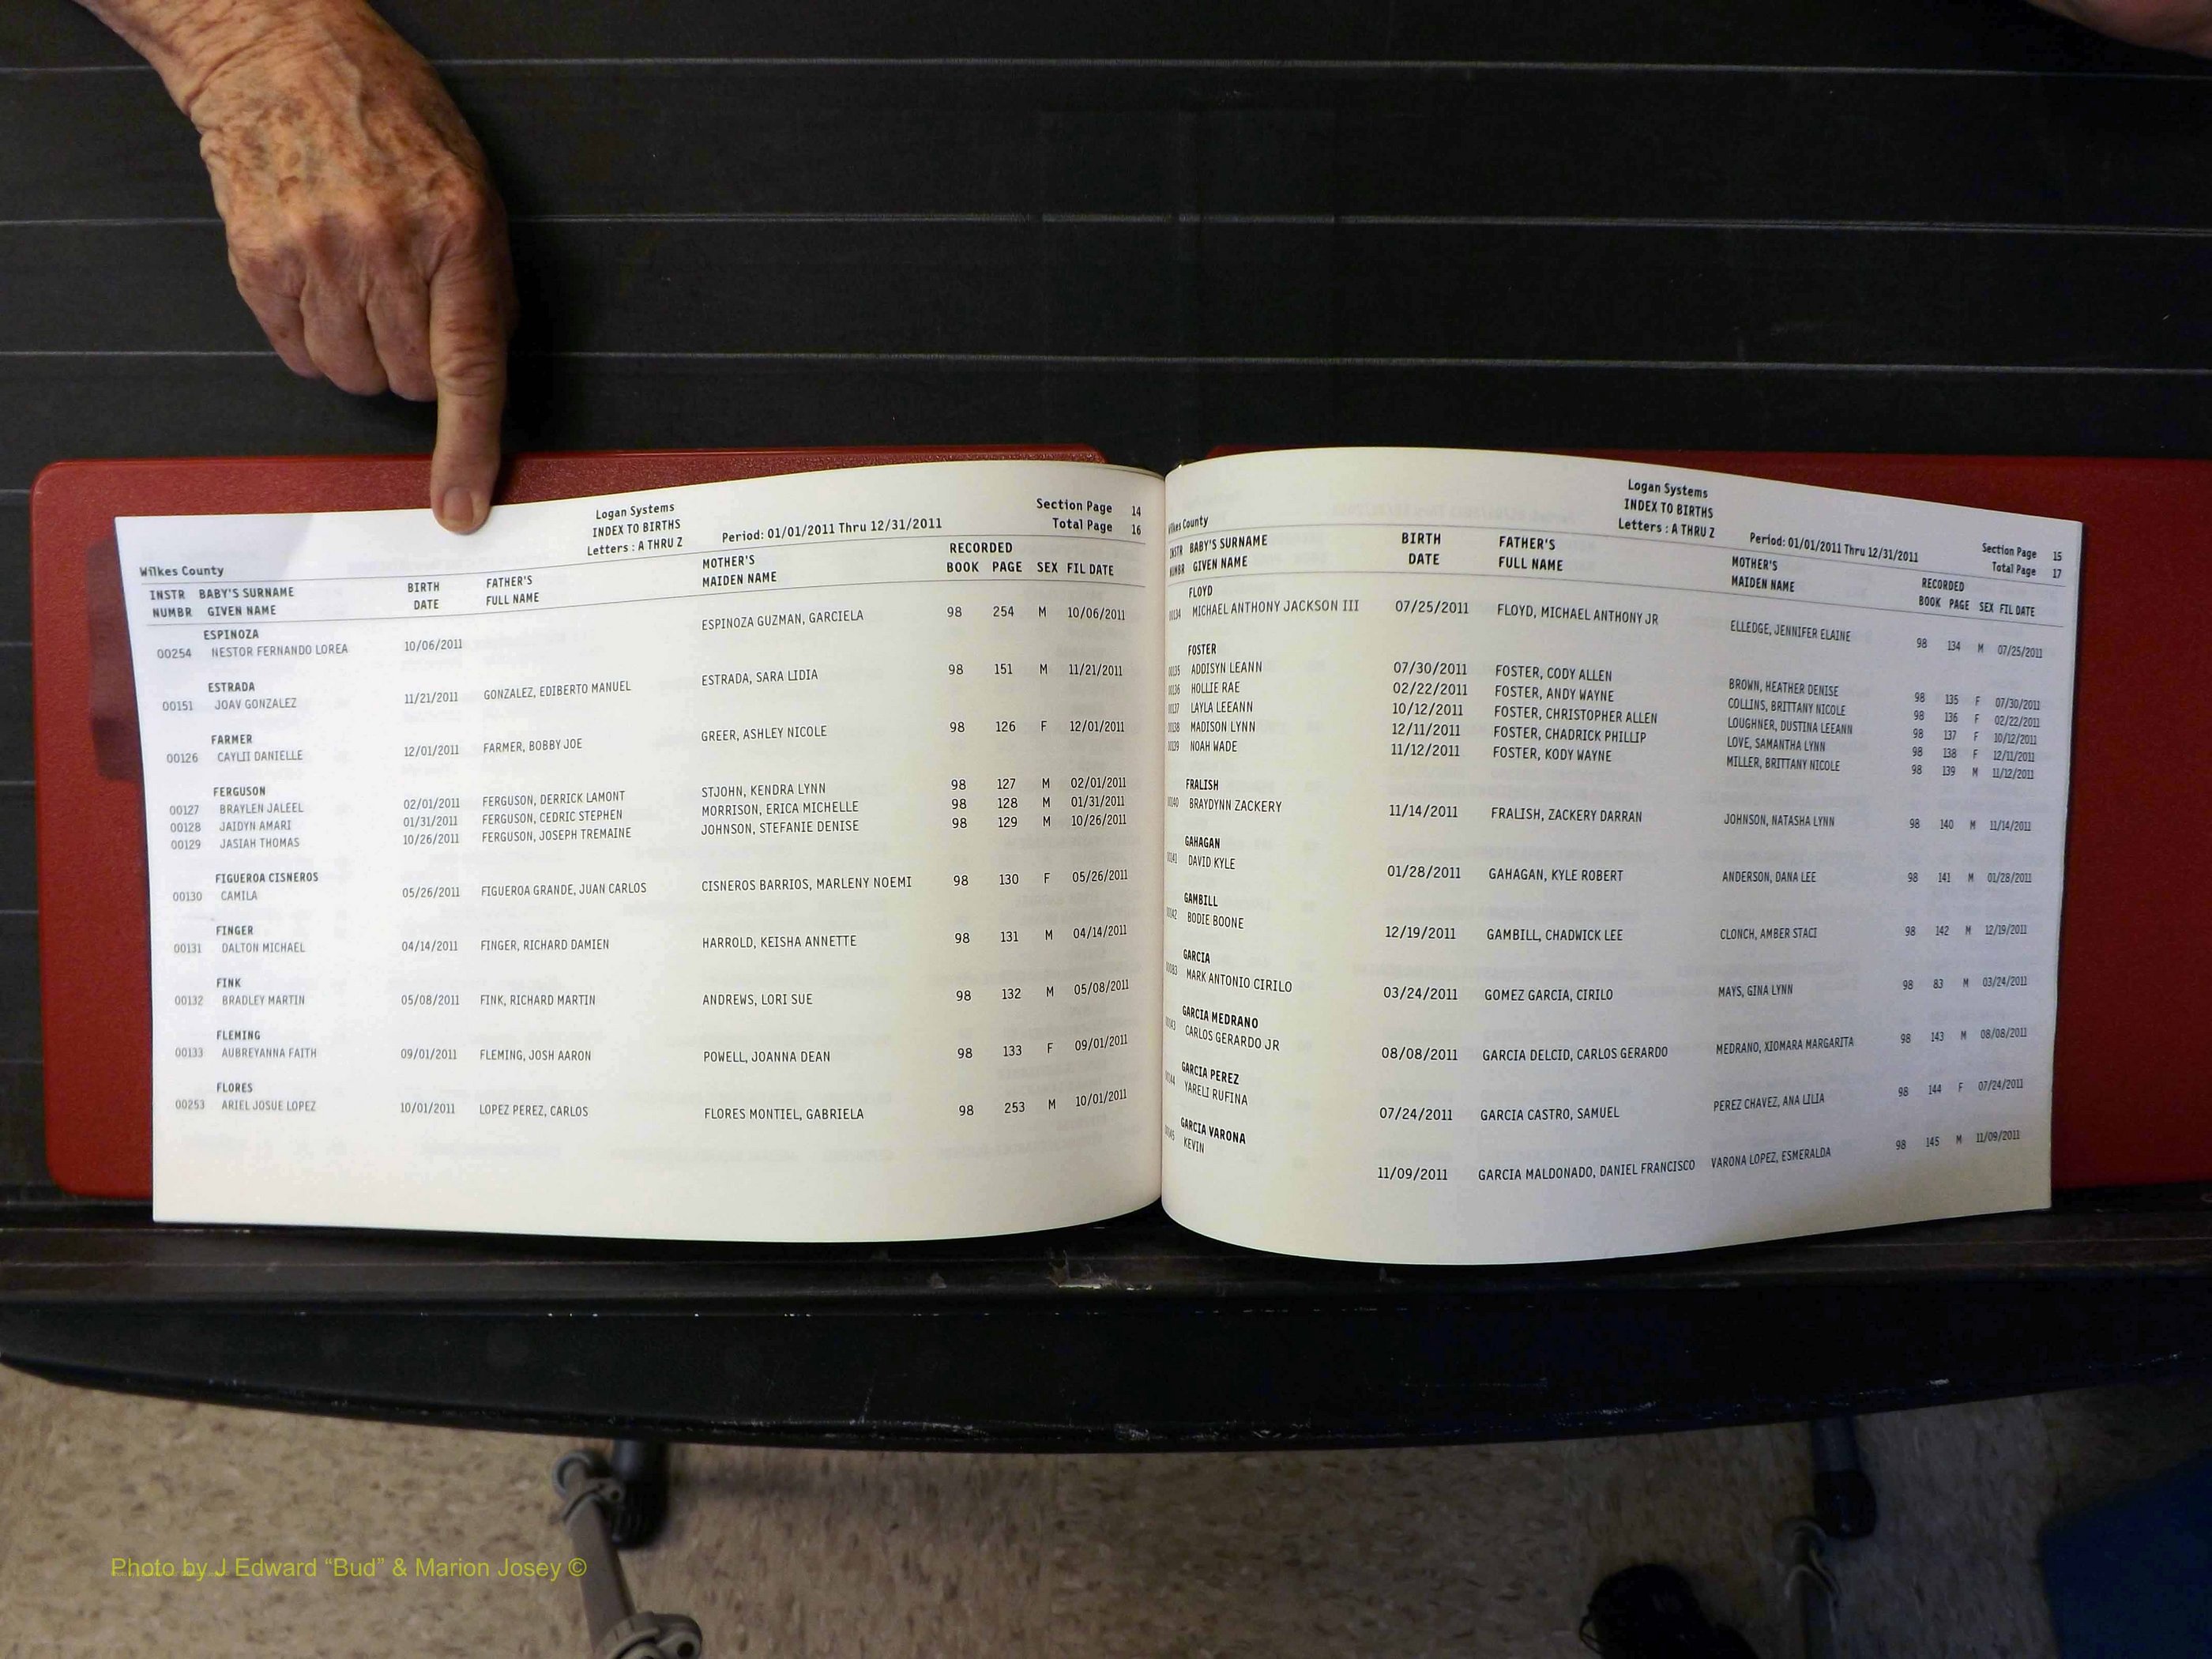 Logan Systems
INDEX TO BIRTHS
Letters : A THRU Z
Period: 01/01/2011 Thru 12/31/2011
Section Page 14
Total Page 16
Wilkes County
INSTR BABY'S SURNAME BIRTH FATHER'S MOTHER'S RECORDED
NUMBR GIVEN NAME DATE FULL NAME MAIDEN NAME BOOK PAGE SEX FIL DATE
ESPINOZA
00254 NESTOR FERNANDO LOREA 10/06/2011 ESPINOZA GUZMAN, GARCIELA 98 254 M 10/06/2011
ESTRADA
00151 JOAV GONZALEZ 11/21/2011 GONZALEZ, EDIBERTO MANUEL ESTRADA, SARA LIDIA 98 151 M 11/21/2011
FARMER
00126 CAYLII DANIELLE 12/01/2011 FARMER, BOBBY JOE GREER, ASHLEY NICOLE 98 126 F 12/01/2011
FERGUSON
00127 BRAYLEN JALEEL 02/01/2011 FERGUSON, DERRICK LAMONT STJOHN, KENDRA LYNN 98 127 M 02/01/2011
00128 JAIDYN AMARI 01/31/2011 FERGUSON, CEDRIC STEPHEN MORRISON, ERICA MICHELLE 98 128 M 01/31/2011
00129 JASIAH THOMAS 10/26/2011 FERGUSON, JOSEPH TREMAINE JOHNSON, STEFANIE DENISE 98 129 M 10/26/2011
FIGUEROA CISNEROS
00130 CAMILA 05/26/2011 FIGUEROA GRANDE, JUAN CARLOS CISNEROS BARRIOS, MARLENY NOEMI 98 130 F 05/26/2011
FINGER
00131 DALTON MICHAEL 04/14/2011 FINGER, RICHARD DAMIEN HARROLD, KEISHA ANNETTE 98 131 M 04/14/2011
FINK
00132 BRADLEY MARTIN 05/08/2011 FINK, RICHARD MARTIN ANDREWS, LORI SUE 98 132 M 05/08/2011
FLEMING
00133 AUBREYANNA FAITH 09/01/2011 FLEMING, JOSH AARON POWELL, JOANNA DEAN 98 133 F 09/01/2011
FLORES
00253 ARIEL JOSUE LOPEZ 10/01/2011 LOPEZ PEREZ, CARLOS FLORES MONTIEL, GABRIELA 98 253 M 10/01/2011
Logan Systems
INDEX TO BIRTHS
Letters : A THRU Z
Period: 01/01/2011 Thru 12/31/2011
Section Page 15
Total Page 17
County
INSTR BABY'S SURNAME BIRTH FATHER'S MOTHER'S RECORDED
GIVEN NAME DATE FULL NAME MAIDEN NAME BOOK PAGE SEX FIL DATE
FLOYD
MICHAEL ANTHONY JACKSON III 07/25/2011 FLOYD, MICHAEL ANTHONY JR ELLEDGE, JENNIFER ELAINE 98 134 M 07/25/2011
FOSTER
ADDISYN LEANN 07/30/2011 FOSTER, CODY ALLEN BROWN, HEATHER DENISE 98 135 F 07/30/2011
HOLLIE RAE 02/22/2011 FOSTER, ANDY WAYNE COLLINS, BRITTANY NICOLE 98 136 F 02/22/2011
LAYLA LEEANN 10/12/2011 FOSTER, CHRISTOPHER ALLEN LOUGHNER, DUSTINA LEEANN 98 137 F 10/12/2011
MADISON LYNN 12/11/2011 FOSTER, CHADRICK PHILLIP LOVE, SAMANTHA LYNN 98 138 F 12/11/2011
NOAH WADE 11/12/2011 FOSTER, KODY WAYNE MILLER, BRITTANY NICOLE 98 139 M 11/12/2011
FRALISH
BRAYDYNN ZACKERY 11/14/2011 FRALISH, ZACKERY DARRAN JOHNSON, NATASHA LYNN 98 140 M 11/14/2011
GAHAGAN
DAVID KYLE 01/28/2011 GAHAGAN, KYLE ROBERT ANDERSON, DANA LEE 98 141 M 01/28/2011
GAMBILL
BODIE BOONE 12/19/2011 GAMBILL, CHADWICK LEE CLONCH, AMBER STACI 98 142 M 12/19/2011
GARCIA
MARK ANTONIO CIRILO 03/24/2011 GOMEZ GARCIA, CIRILO MAYS, GINA LYNN 98 83 M 03/24/2011
GARCIA MEDRANO
CARLOS GERARDO JR 08/08/2011 GARCIA DELCID, CARLOS GERARDO MEDRANO, XIOMARA MARGARITA 98 143 M 08/08/2011
GARCIA PEREZ
YARELI RUFINA 07/24/2011 GARCIA CASTRO, SAMUEL PEREZ CHAVEZ, ANA LILIA 98 144 F 07/24/2011
GARCIA VARONA
KEVIN 11/09/2011 GARCIA MALDONADO, DANIEL FRANCISCO VARONA LOPEZ, ESMERALDA 98 145 M 11/09/2011
Photo by J Edward “Bud” & Marion Josey ©